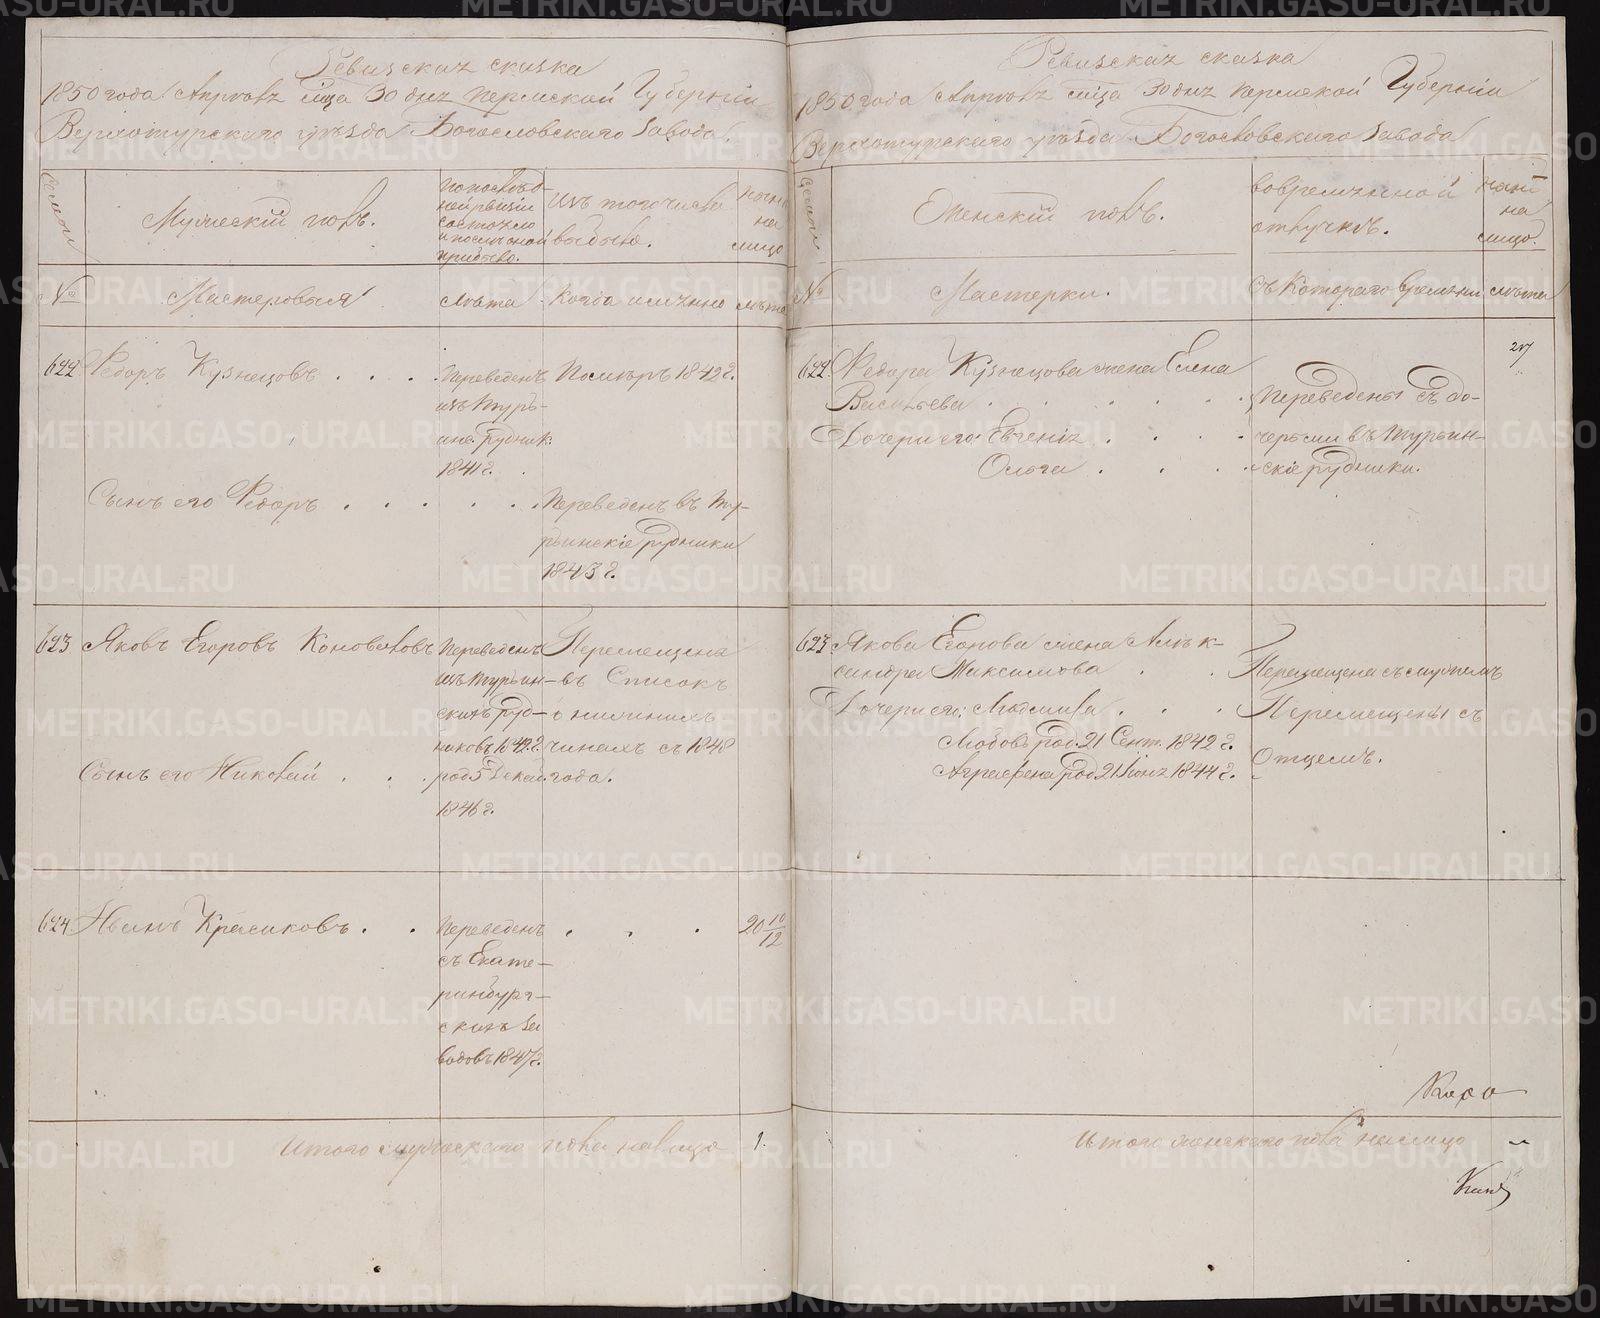 Ревизская сказка
1850 года Апреля м-ца 30 дня Пермской Губернии
Верхотурского уѣзда Богословского завода.
Семьи
Мужеский полъ.
По послѣд-
ней ревизии
состояло
и после оной
прибыло.
Изъ того числа
выбыло.
Ныне
на
лицо
№
Мастеровыя
Лѣта
Когда именно
лѣта
622
Федоръ Кузнецовъ . . . .
Переведенъ
изъ Турь-
инс. рудник.
1841 г.
Померъ 1842 г.
Сынъ его Федоръ . . . . . .
Переведенъ въ Ту-
рьинские рудники
1843 г.
623
Яковъ Егоровъ Коноваловъ
Переведенъ
изъ Турьин-
скихъ руд-
никовъ 1842 г.
Перемещенъ
въ Список
о нижнихъ
чинахъ съ 1848
года.
Сынъ его Николай . . .
род. 5 Декаб.
1846 г.
624
Иванъ Красиковъ . .
Переведенъ
съ Екате-
ринбург-
скихъ за
водовъ 1847 г.
. . .
20 10/12
Итого мужеского пола на лицо 1.
Ревизская сказка
1850 года Апреля м-ца 30 дня Пермской Губернии
Верхотурского уѣзда Богословского завода
Семьи
Женский полъ.
Во временной
отлучкѣ.
Ныне
на
лицо.
№
Мастерки.
Съ которого времени
лѣта
622.
Федора Кузнецова жена Елена
Васильева . . . . . .
Дочери его: Евгения . . . .
Ольга . . . .
Переведены съ до-
черьми въ Турьин-
ские рудники.
27
623
Якова Егорова жена Алек-
сандра Максимова . .
Дочери его: Людмила . . .
Любовь род. 21 Сент. 1842 г.
Агрефена род. 21 Июня 1844 г.
Перемещена съ мужемъ
Перемещены съ
Отцемъ.
Итого женского пола на лицо „